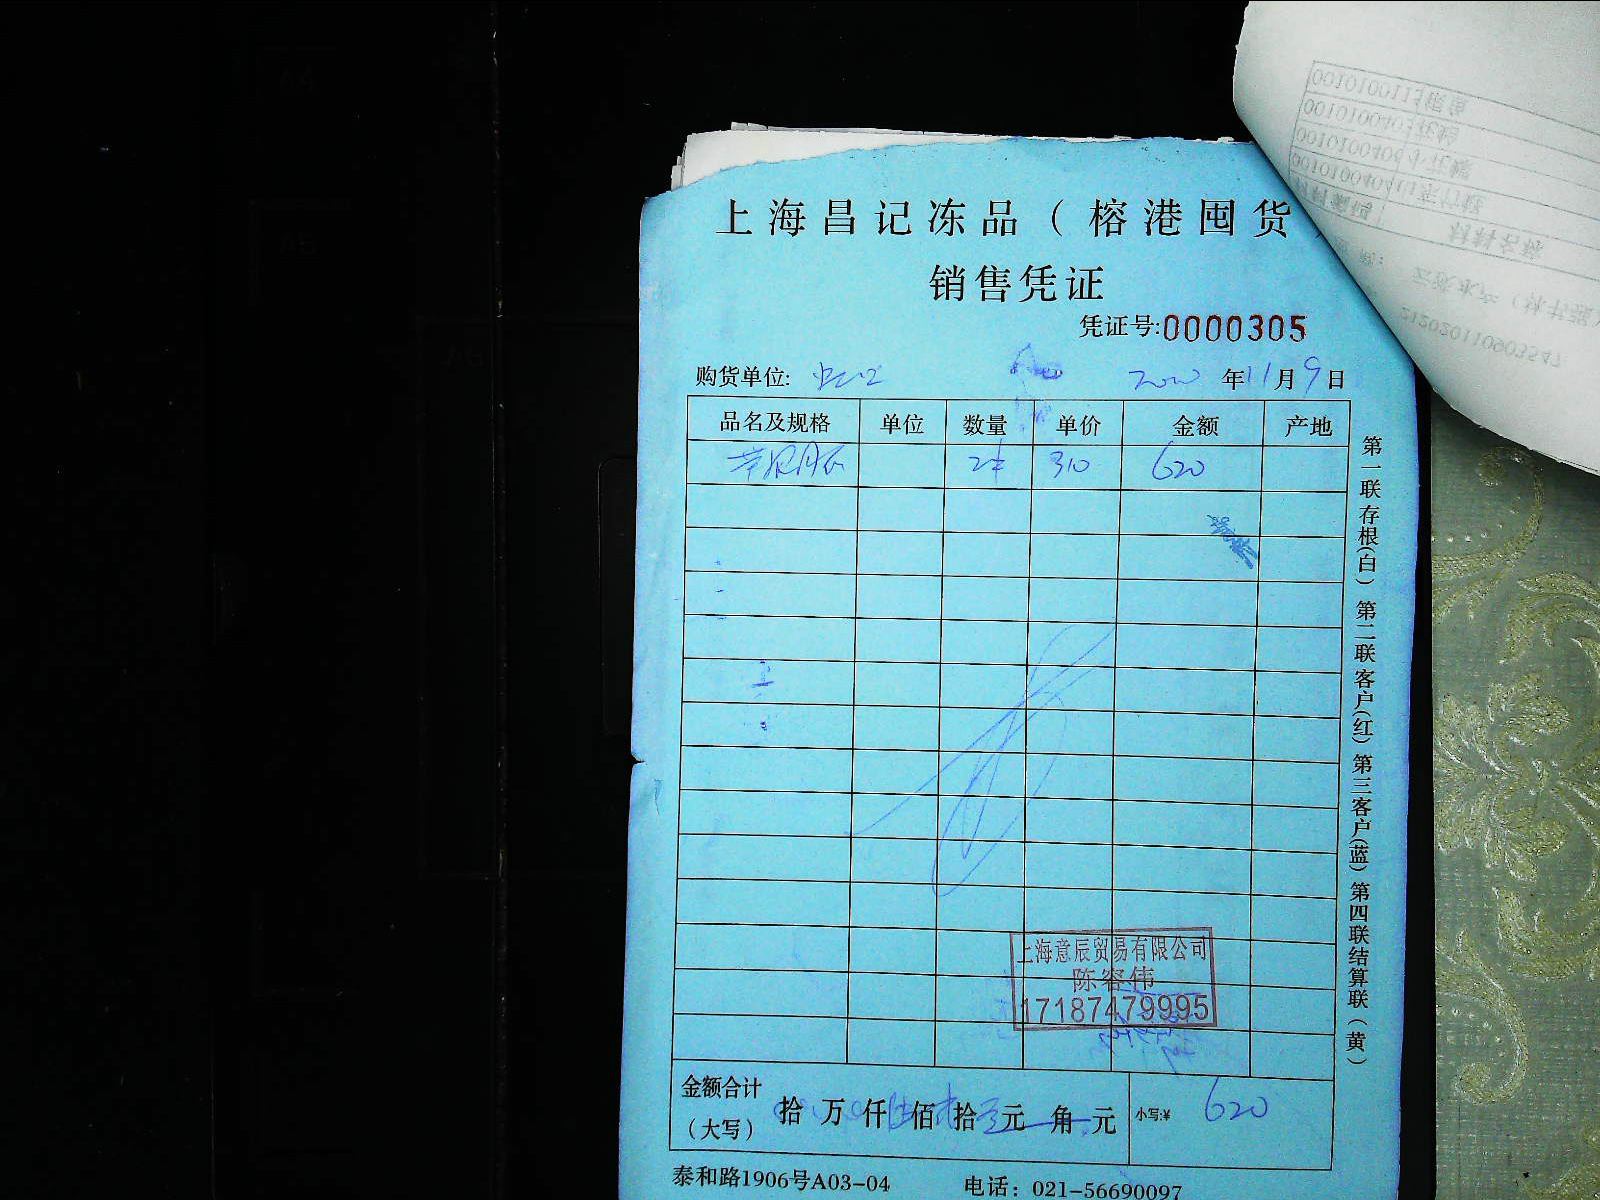 上海昌记冻品（榕港囤货
销售凭证
凭证号:0000305
购货单位: 2020年11月9日
品名及规格 单位 数量 单价 金额 产地
2件 310 620
上海意辰贸易有限公司
陈容伟
17187479995
金额合计（大写） 拾万仟陆佰拾元角元 小写:¥ 620
泰和路1906号A03-04 电话：021-56690097
第一联存根(白) 第二联客户(红) 第三客户(蓝) 第四联结算联（黄）